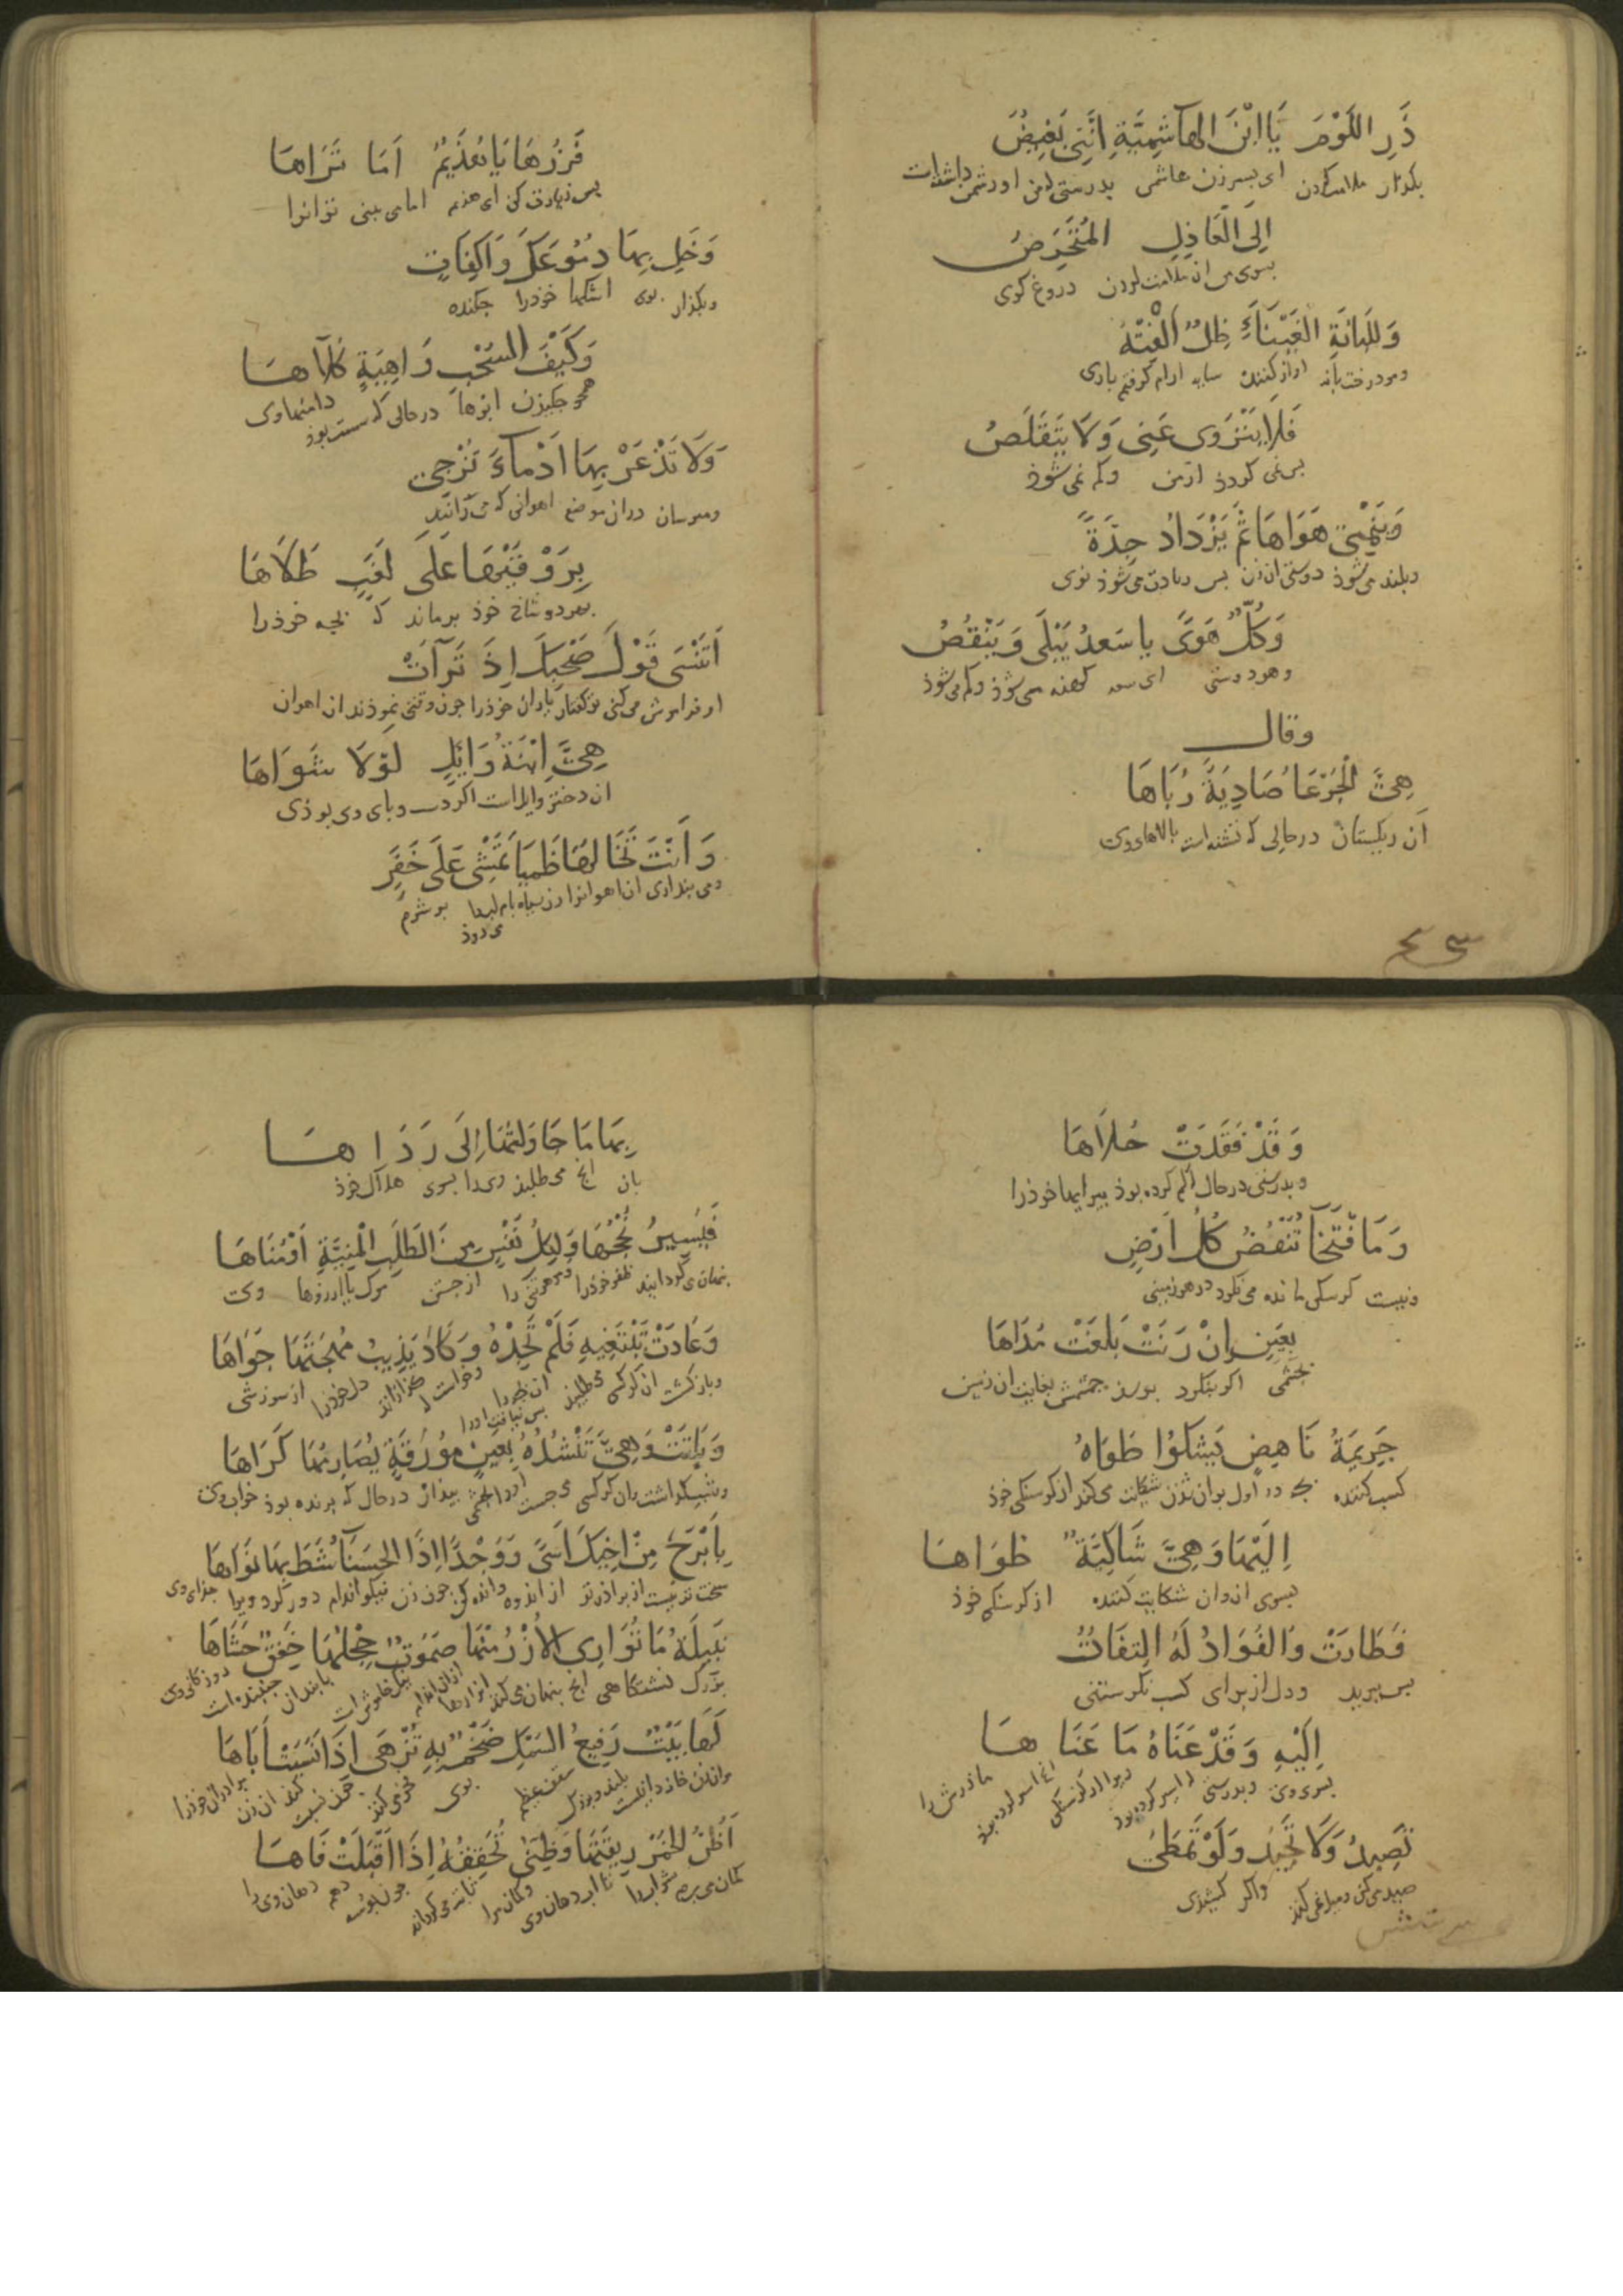 ذَرِ اللَّوْمَ يَا ابْنَ الهَاشِمِيَّةِ اِنَّنِى بَغِيضٌ
بگذار ملامت کردن ای پسر زن هاشمی بدرستی که من او دشمن داشته‌ام
اِلَىَّ الْعَاذِلِ المُتَخَرِّصُ
بسوی من ان ملامت کردن دروغ گوی
وَلِلبَانَةِ الغَيْنَاءِ ظِلٌّ اَلِفْتُهُ
سایه ارام گرفتم بازی
فَلَا يَنْزَوِى عَنِى وَلَا يَتَقَلَّصُ
بس نمی کردد از من و کم نمی شوذ
وَيَنْمِى هَوَاهَا ثُمَّ يَزْدَادُ جِدَّةً
و بلند می شوذ دوستی ان زن بس زیادت می شوذ نوی
وَكُلُّ هَوًى يا سَعدُ يَبْلَى وَيَنْقُصُ
و هر دوستی ای سعد کهنه می شوذ و کم می شوذ
وقال
هِىَ الْجَرْعَا صَادِيَةً رُبَاهَا
آن ریکستان در حالی که تشنه است بالاهای وی
فَزُرْهَا يَا هُذَيْمُ اَمَا تَرَاهَا
بس زیارت کن ای هذیم اما می بینی تو انرا
وَخَلِّ بِهَا دُمُوعَكَ وَاكِفَاتٍ
و بگذار بوی اشکها خوذرا چکنده
وَكَيْفَ السُّحْبِ وَاهِيَةٍ كُلَاهَا
همجو جکیذن ابرها در حالی که سست بوذ دامنهاوی
وَلَا تَذْعَرْ بِهَا اَدْمآءَ تُزْجِى
و مترسان دران موضع اهوانی که می رانند
بِرَوْقَيْهَا عَلَى لَغَبٍ طَلَاهَا
بهر دو شاخ خوذ بر ماند کی بجه خوذرا
اَتَنْسَى قَوْلَ صَحْبِكَ اِذْ تَرَآتْ
او فراموش می کنی تو گفتار یاران خوذرا جون وقتی نموذند ان اهوان
هِىَ ابْنَةُ وَايِلٍ لَوْلَا شَوَاهَا
ان دختر وایل است اگر دست و بای وی بوذی
وَاَنْتَ تَخَالُهَا ظَمْيَا تَمْشِى عَلَى خَفَرٍ
و می بنداری ان اهوانرا زن سیاه بام لبها بر شرم
می روذ
وَقَدْ فَقَدَتْ حُلَاهَا
و بدرستی در حال کم کرده بوذ بیرایها خوذرا
وَمَا فَتْخَآ تَنْفُضُ كُلَّ اَرْضٍ
و نیست کرسکی ماده می نکرد در هر زمینی
بِعَيْنٍ اِنْ رَنَتْ بَلَغَتْ مَدَاهَا
بجشمی اگر بنکرد برسذ جشمش بغایت ان زمین
جَرِيمَةُ نَاهِضٍ يَشْكُوا طَوَاهُ
کسب کننده بجه در اول بران شذن شکایت می کند از کرسنکی خوذ
اِلَيْهَا وَهِىَ شَاكِيَةٌ طَوَاهَا
بسوی او و ان شکایت کننده از کرسنکی خوذ
فَطَارَتْ وَالفُؤَادُ لَهُ التِفَاتٌ
بس ببرید و دل از برای کسب نکرستنی
اِلَيْهِ وَقَدْ عَنَاهُ مَا عَنَاهَا
بسوی وی و بدرستی
تَصِيدُ وَلَا تَحِيدُ وَلَوْ تَمَطَّى
صید می کند و میل نمی کند واگر کشیذی
بِهَا مَا حَاوَلَتْهَا اِلَى رَدَاهَا
بان انج می طلبذ ویرا بسوی هلاک خوذ
فَيُسِيرُ نُجْحُهَا وَلِكُلِّ نَفْسٍ مِنَ الطَّلَبِ الْمَنِيَّةِ اَوْ مُنَاهَا
ظفر خوذرا و هر تنی را از جستن مرک یا ارزوها وی
وَعَادَتْ تَبْتَغِيهِ فَلَمْ تَجِدْهُ وَكَادَ يُذِيبُ مُهْجَتَهَا جَوَاهَا
و باز کشت ان کرکس می طلبید ان بجه را بس نیافت اورا دل خوذرا از سوزشی
وَبَاتَتْ وَهِىَ تَنْشُدُهُ بِعَيْنٍ مُؤَرَّقَةٍ يُضَارِبُهَا كَرَاهَا
و شب گذاشت و ان کرکس می جست اورا بجشمی بیذار در حال که برنده بوذ خواب وی
بِاَبْرَحَ مِنْ اَخِيكَ اَسًى وَوَجْدًا اِذَا الحَسْنَآءُ شَطَّ بِهَا نَوَاهَا
سخت تر نیست از براذر تو از اندوه و اندهکن جون زن نیکو اندام دور کرد ویرا جذای وی
نَبِيلَةُ مَا تُوَارِى الْاُزْرُ مِنْهَا صَمُوتٌ حِجْلُهَا خَفِقٌ حَشَاهَا
بزرک نشستگاهی انج بنهان می کند ازارها
لَهَا بَيْتٌ رَفِيعُ السَّمْكِ ضَخْمٌ بِهِ تُزْهَى اِذَا انْتَسَبَتْ اَبَاهَا
مر ان زن خانه ایست بلند و بزرک سقف عظیم بوی فخر می کند جون نسبت کند ان زن براذران خوذرا
اَظُنُّ الخَمْرَ رِيقَتَهَا وَظَنِّى تُحَقِّقُهُ اِذَا قَبَّلَتُ فَاهَا
کمان می برم شرابرا اب دهان وی و کمان مرا جون بوسه دهم دهان وی را